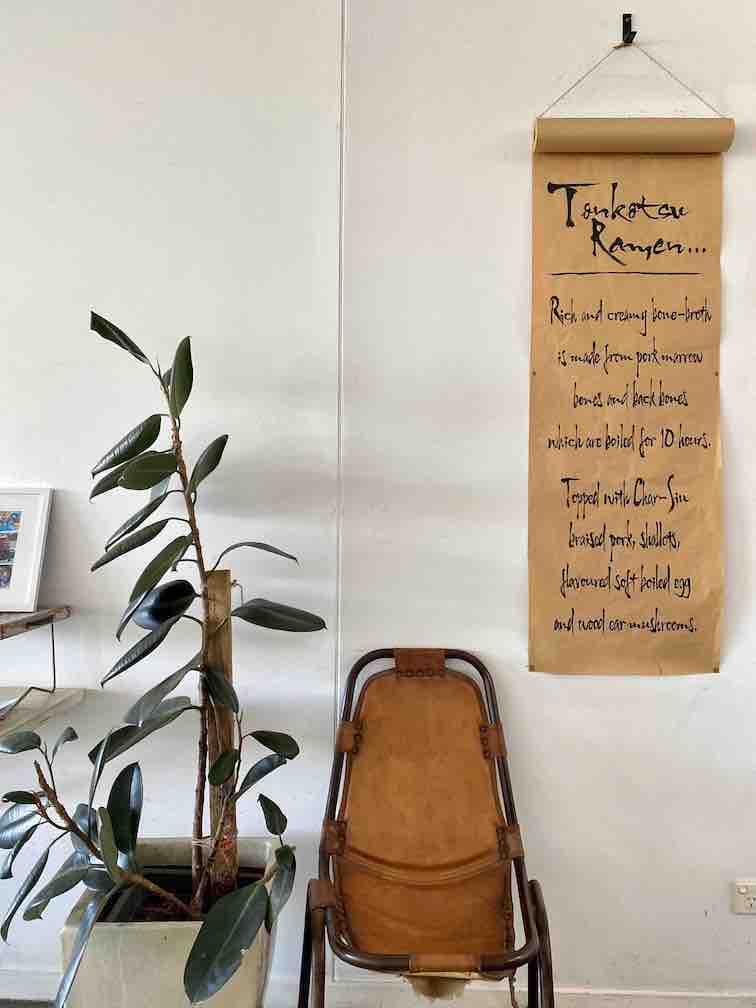 Tonkotsu
Ramen...
Rich and creamy bone-broth
is made from pork marrow
bones and back bones
which are boiled for 10 hours.
Topped with Char-Siu
braised pork, shallots,
flavoured soft boiled egg
and wood ear mushrooms.